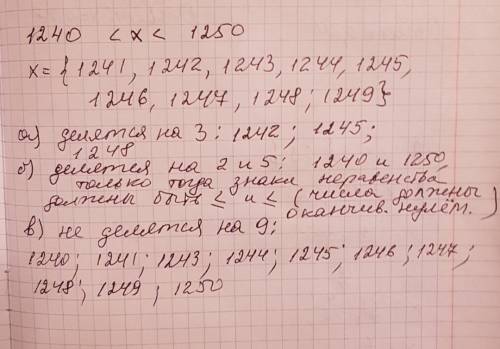 1240 < x < 1250
x = {1241, 1242, 1243, 1244, 1245,
1246, 1247, 1248; 1249}
а) делятся на 3: 1242; 1245;
1248
б) делятся на 2 и 5: 1240 и 1250,
только тогда знаки неравенства
должены быть ≤ и ≤ (числа должены
оканчив. нулём.)
в) не делятся на 9:
1240; 1241; 1243; 1244; 1245; 1246; 1247;
1248; 1249; 1250